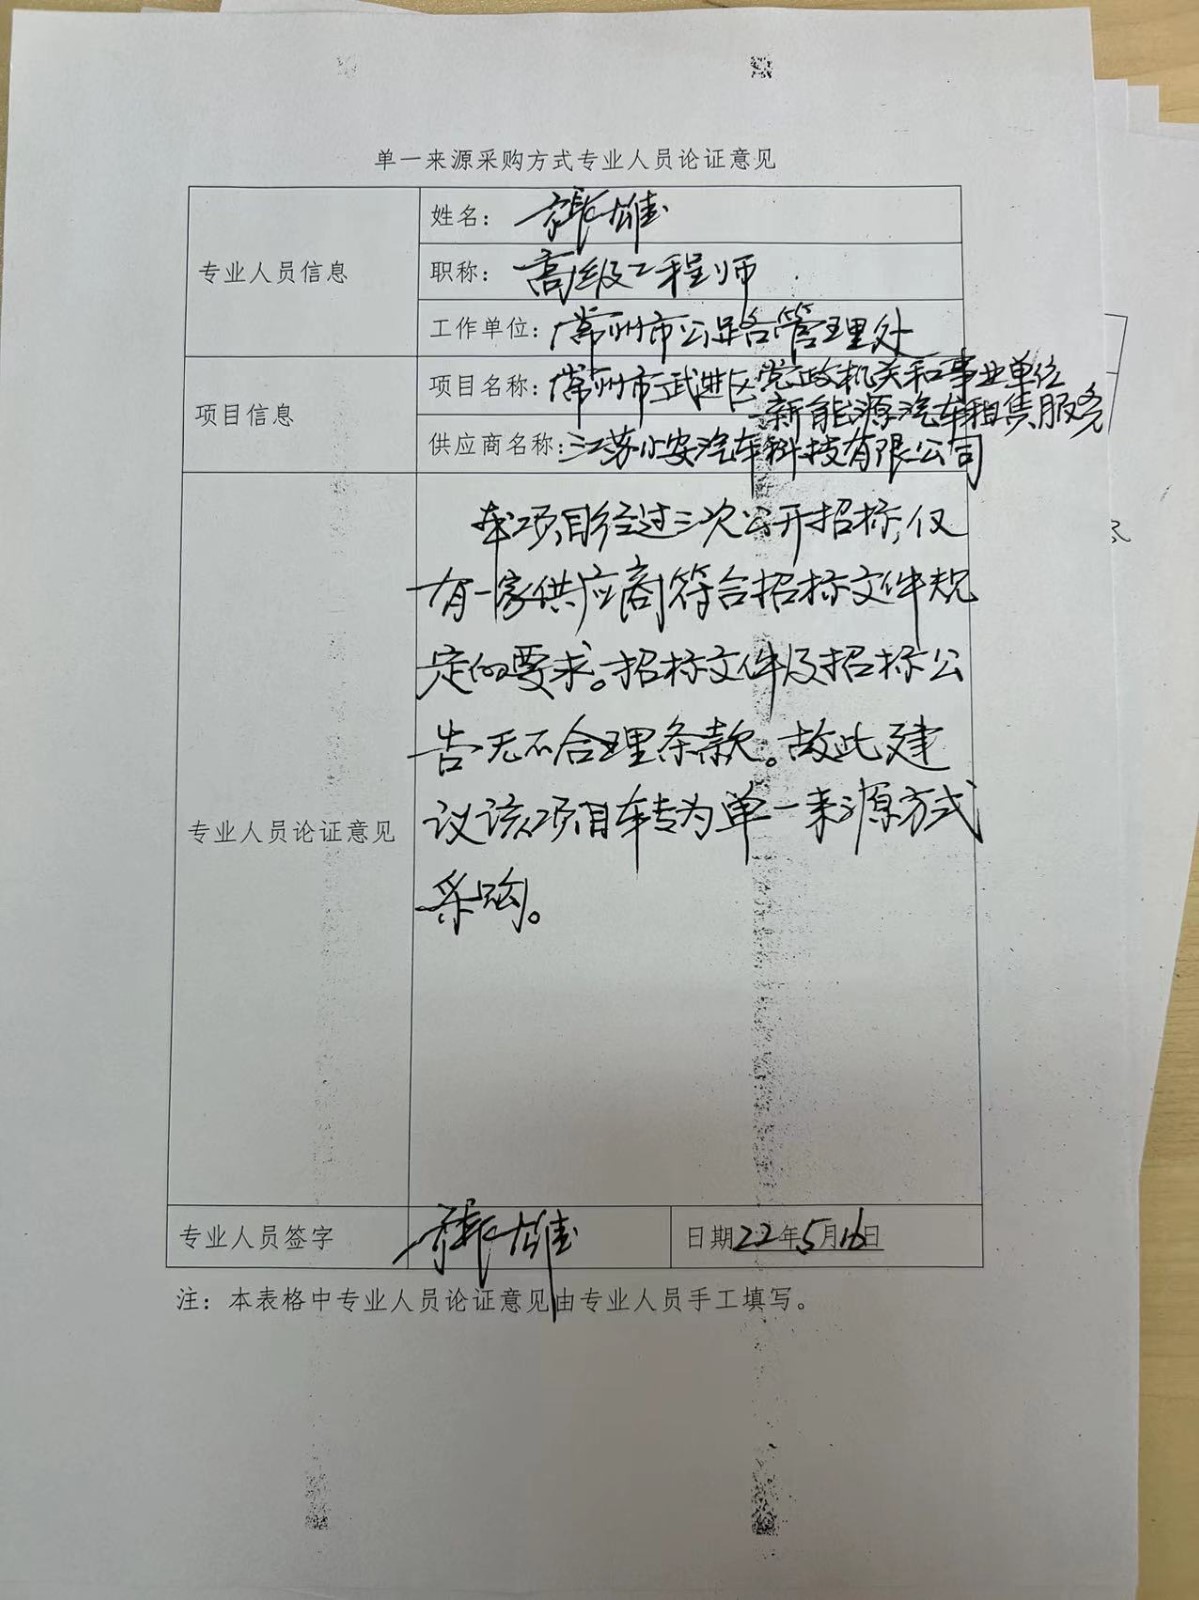 单一来源采购方式专业人员论证意见
专业人员信息
姓名：
职称：高级工程师
工作单位：常州市公路管理处
项目信息
项目名称：常州市武进区党政机关和事业单位
新能源汽车租赁服务
供应商名称：江苏小安汽车科技有限公司
专业人员论证意见
本项目经过三次公开招标，仅
有一家供应商符合招标文件规
定的要求。招标文件及招标公
告无不合理条款。故此建
议该项目转为单一来源方式
采购。
专业人员签字
日期22年5月16日
注：本表格中专业人员论证意见由专业人员手工填写。